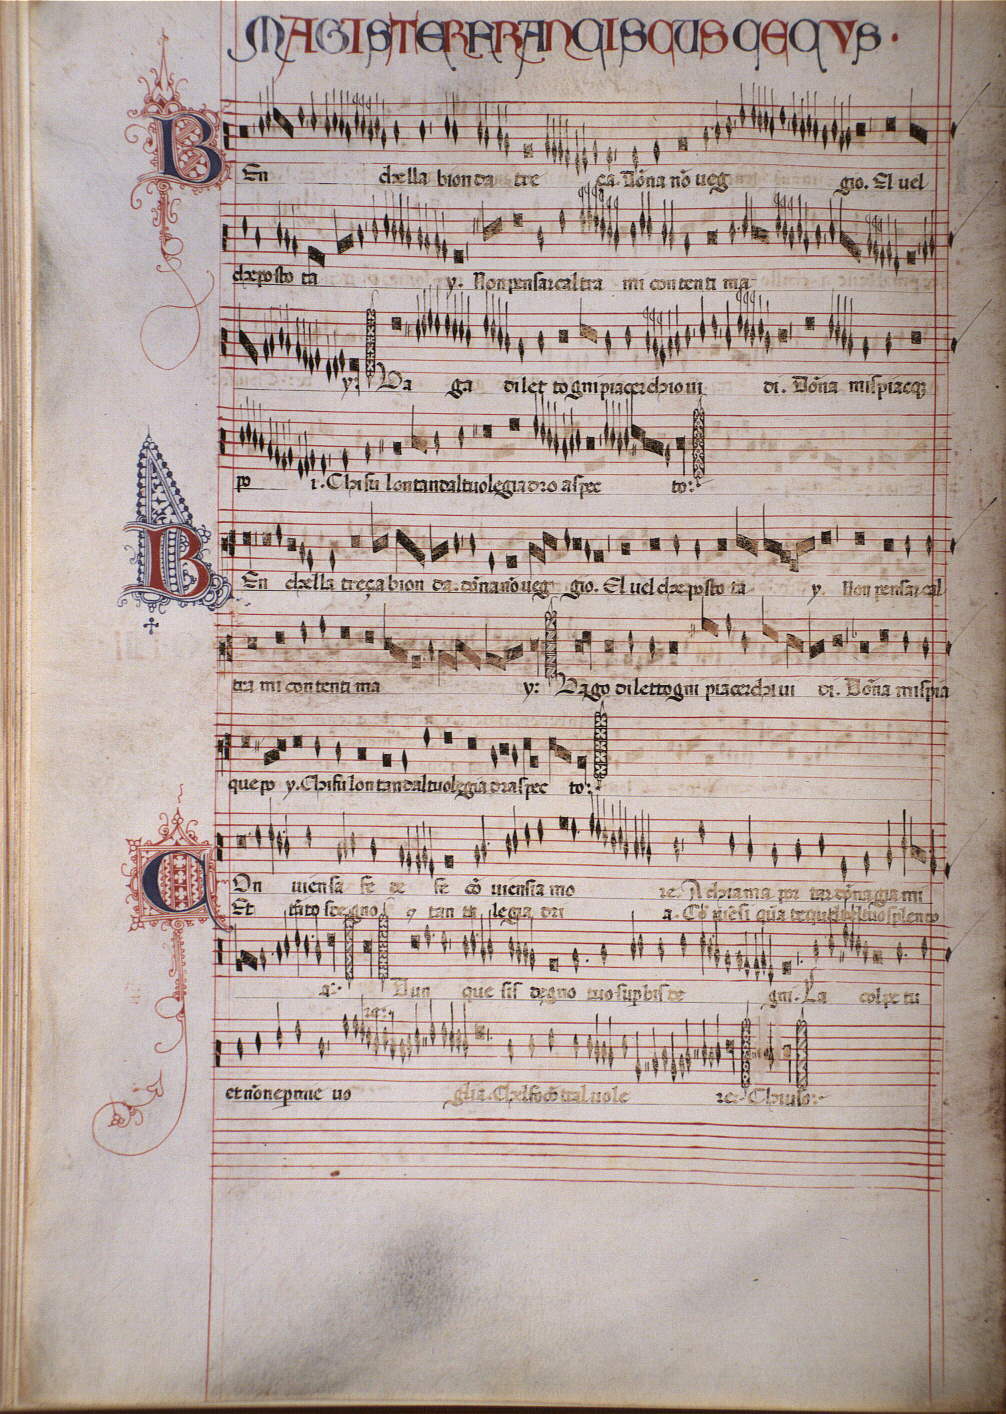 MAGISTER FRANCISCUS CECVS.
BEn chella bionda tre ça. Dõna nõ ueg gio. El uel
cheposto ta y. Non pensar cal tra mi con tenti ma
y: Va ga dilet to gni piacer chio ui di. Dõna mi spiaceq
po i. Chi su lontan dal tuo legiadro a spec to:
BEn chella treça bion da. dõna nõ ueg gio. El uel che posto ta y Non pensar cal
tra mi con tenti ma y: Vago dilettogni piacer chi ui di. Dõna mi spia
que po y. Chi su lon tan dal tuo legia dra spec to:
COn uien sa fe de se cõ uiensia mo re. A chiama per tar dõna gia mi
Et tãto sdegno tan ta legia dri a.
a: Dun que sis degno tuo supbis de gni. La colpe tu
et nõne prnie uo glia. Chel focõ tal uole re: Chiuso: